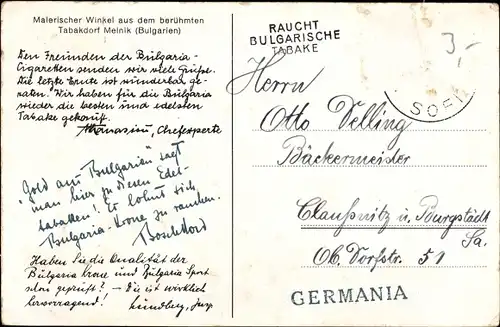 Malerischer Winkel aus dem berühmten
Tabakdorf Melnik (Bulgarien)
Den Freunden der Bulgaria-
Cigaretten senden wir viele Grüße.
Die letzte Ernte ist wunderbar ge-
raten. Wir haben für die Bulgaria
wieder die besten und edelsten
Tabake gekauft.
Athanasiou, Chefexperte
"Gold aus Bulgarien" sagt
man hier zu diesen Edel-
tabaken! Es lohnt sich
Bulgaria-Krone zu rauchen.
Haben Sie die Qualität der
Bulgaria Krone und Bulgaria Sport
schon geprüft? - Sie ist wirklich
hervorragend!
RAUCHT
BULGARISCHE
TABAKE
3,-
SOFIA
Herrn
Otto Velling
Bäckermeister
Claußnitz ü. Burgstädt
Sa.
Ob. Dorfstr. 51
GERMANIA